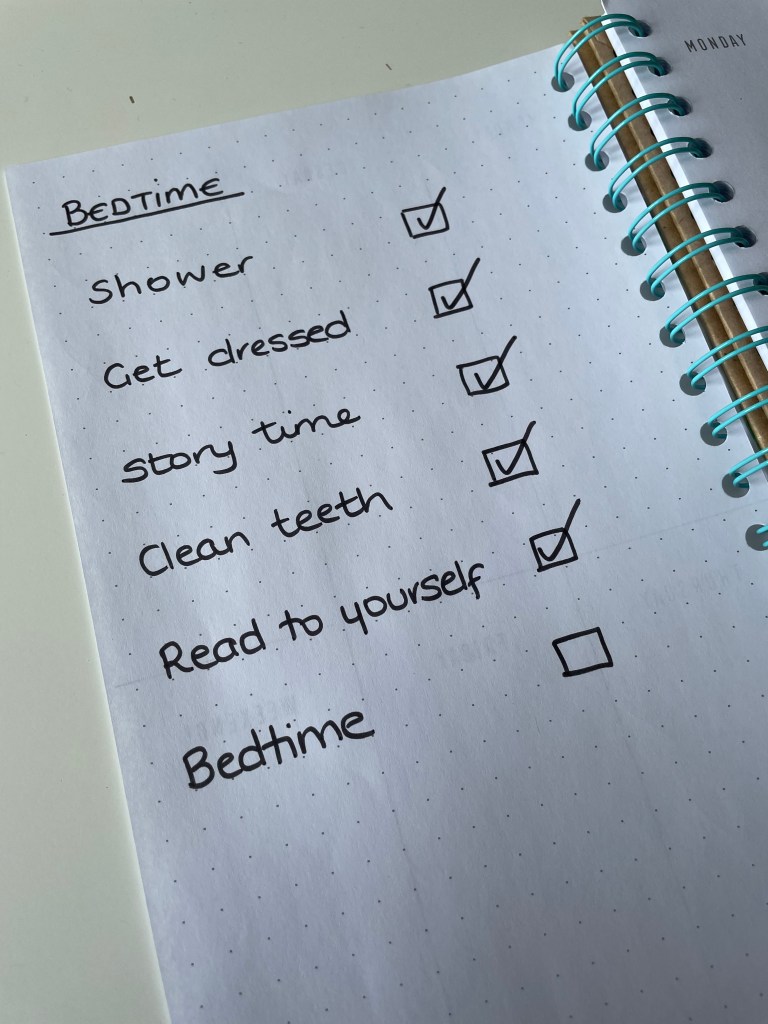 MONDAY
BEDTIME
Shower ☑
Get dressed ☑
story time ☑
Clean teeth ☑
Read to yourself ☑
Bedtime ☐